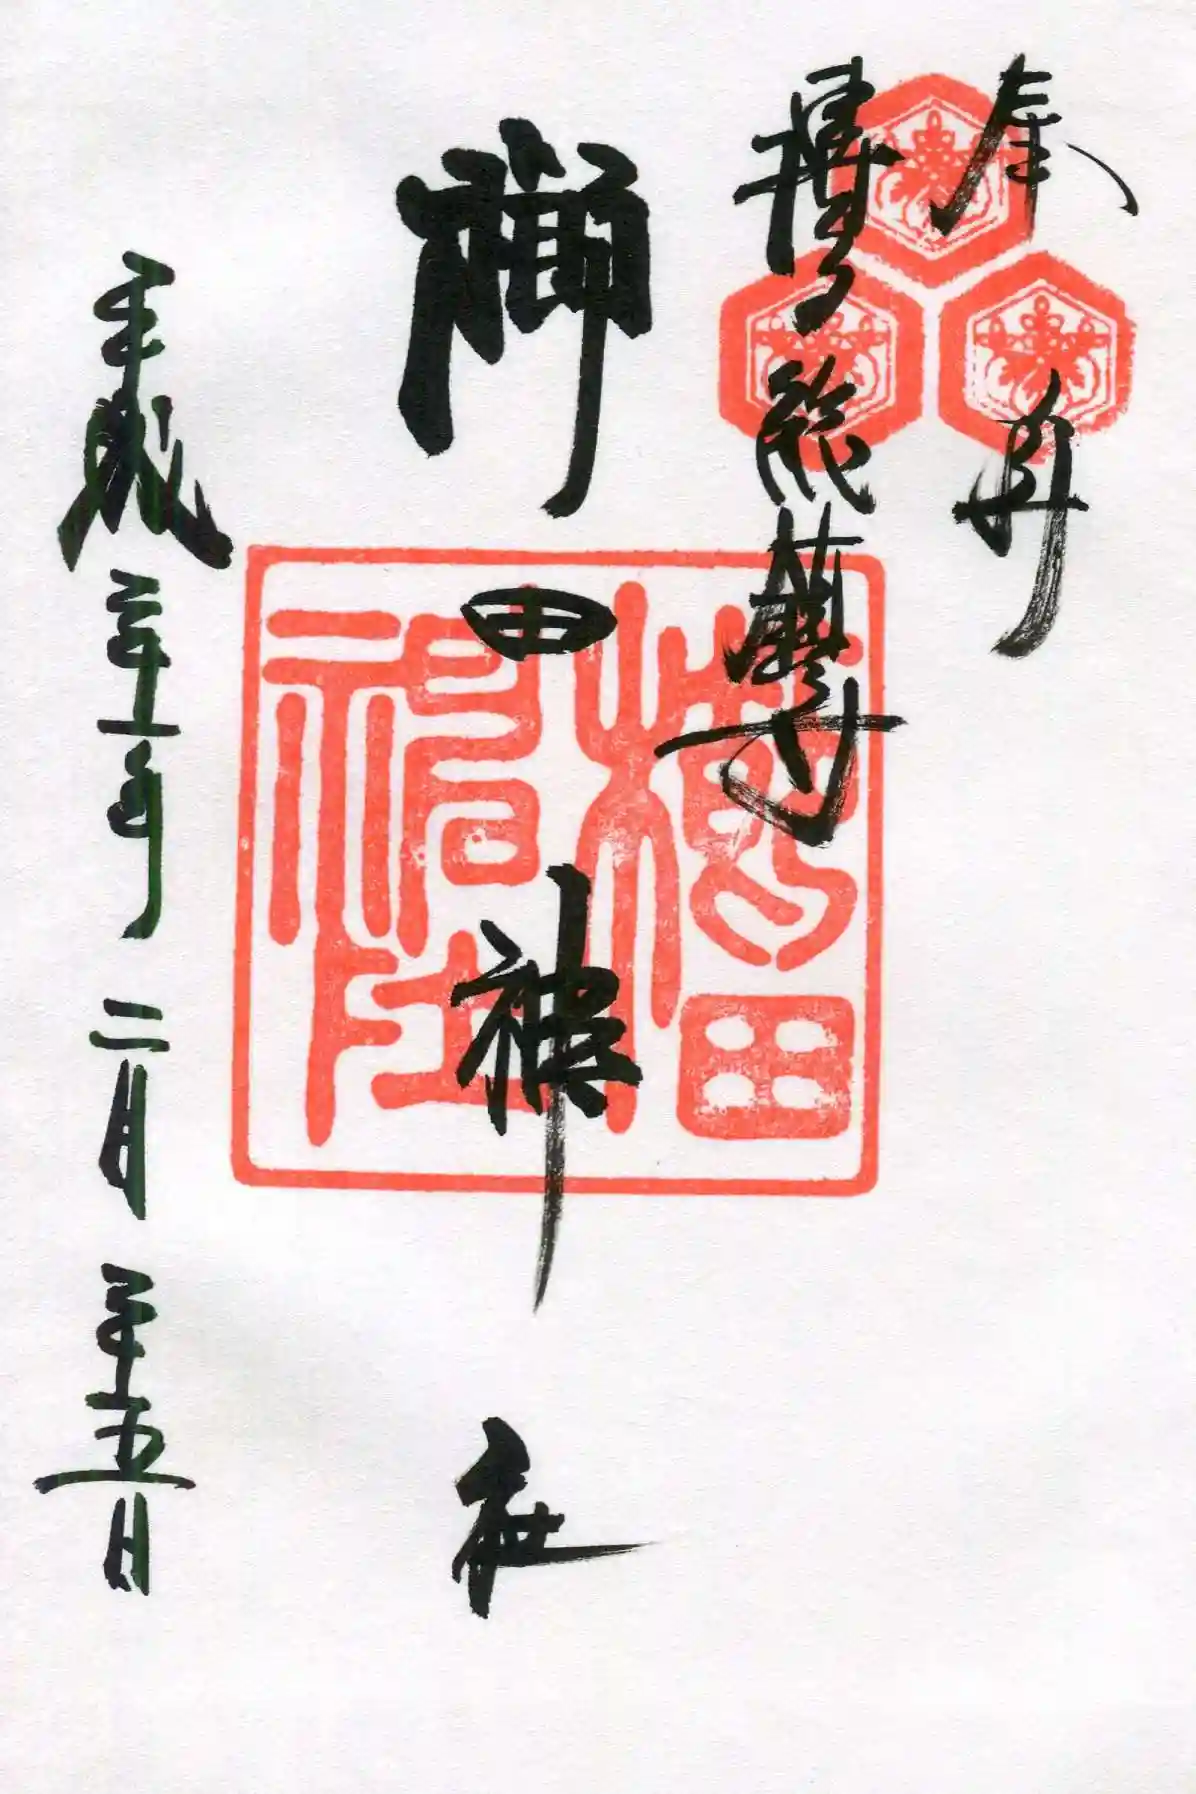 奉拝
博多総鎮守
櫛田神社
平成二十一年二月二十五日
櫛田
神社